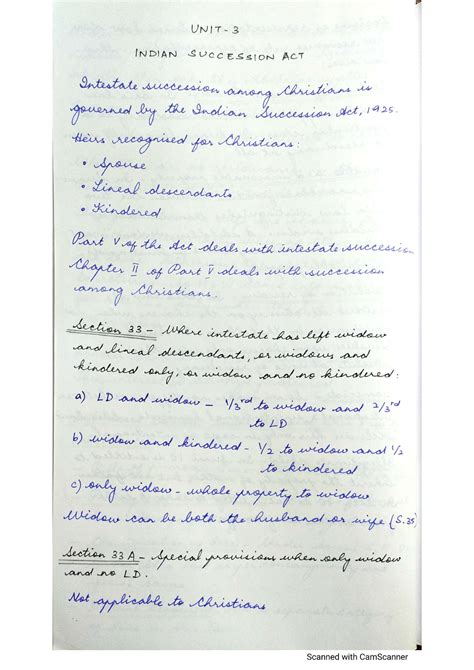 UNIT - 3
INDIAN SUCCESSION ACT
Intestate succession among Christians is
governed by the Indian Succession Act, 1925.
Heirs recognised for Christians:
• Spouse
• Lineal descendants
• Kindered
Part V of the Act deals with intestate succession
Chapter II of Part V deals with succession
among Christians.
Section 33 - Where intestate has left widow
and lineal descendants, or widows and
kindered only, or widow and no kindered:
a) LD and widow - 1/3rd to widow and 2/3rd
to LD
b) widow and kindered - 1/2 to widow and 1/2
to kindered
c) only widow - whole property to widow
Widow can be both the husband or wife (S.35)
Section 33 A - Special provisions when only widow
and no LD.
Not applicable to Christians
Scanned with CamScanner